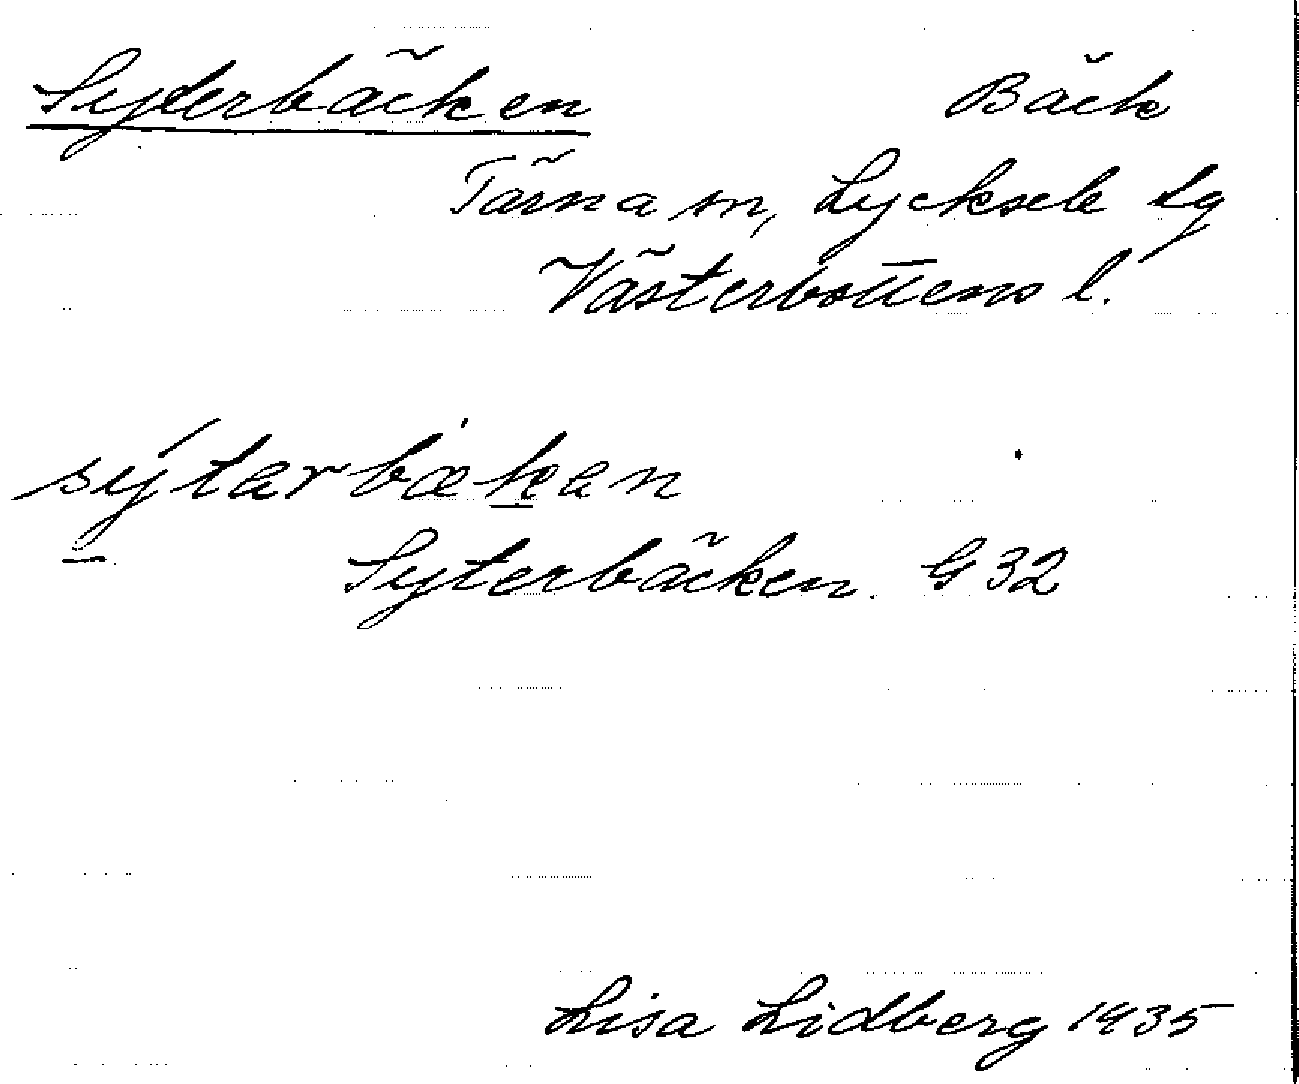 Syterbäcken Bäck
Tärna sn, Lycksele lg
Västerbottens l.
sýtarbækan
Syterbäcken. G 32
Lisa Lidberg 1935